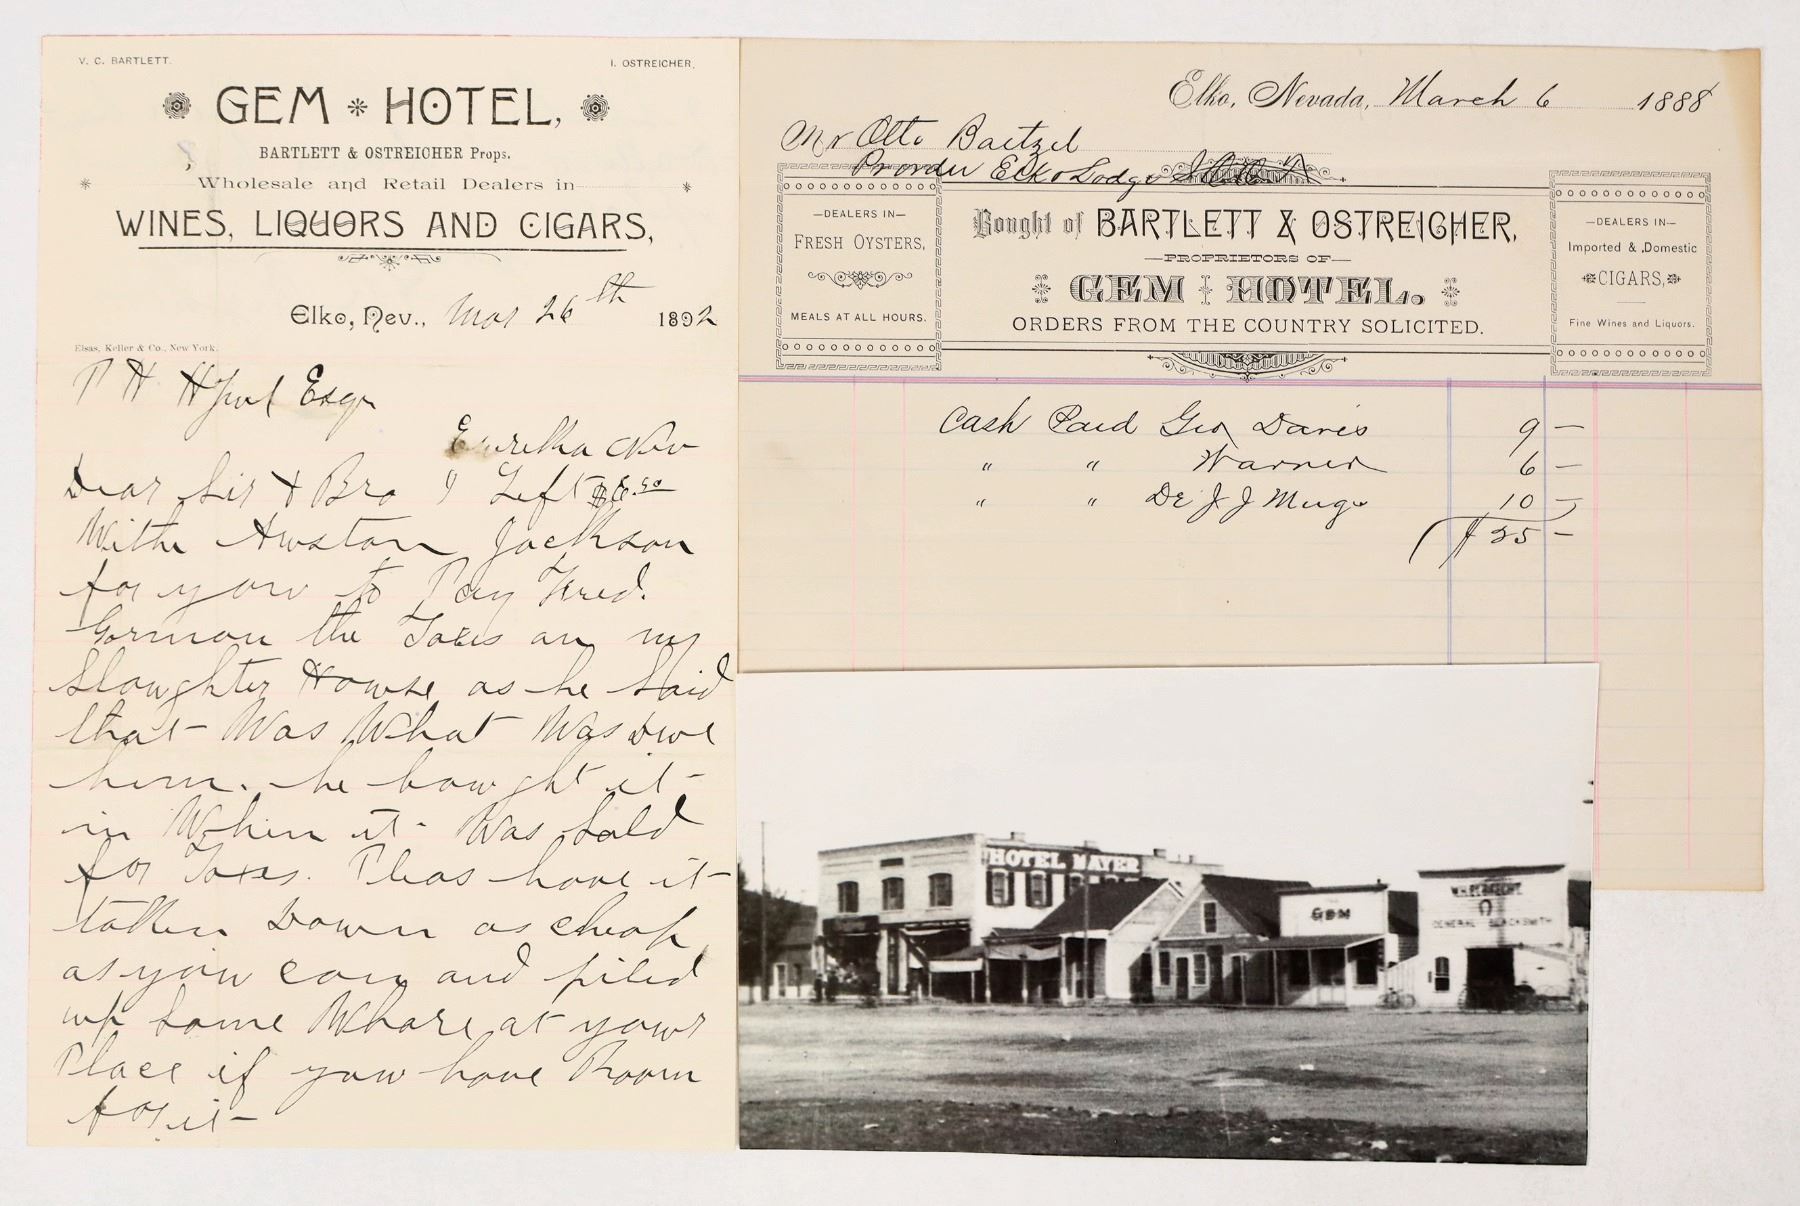 V. C. BARTLETT.
I. OSTREICHER.
GEM HOTEL,
BARTLETT & OSTREICHER Props.
Wholesale and Retail Dealers in
WINES, LIQUORS AND CIGARS,
Elko, Nev., Mar 26th 1892
Elsas, Keller & Co., New York.
P H Hjul Esqr
Eureka Nev
Dear Sir & Bro I Left $6.50
With Awstan Jackson
for yow to Pay Fred.
Gorman the Taxes an my
Slawghter Howse as he Said
that Was What Was Dwe
him. he bowght it
in When it Was Sold
for Taxes. Pleas have it
taken Down as cheap
as yow can and piled
wp Some Whare at yowr
Place if yow have Room
for it
Elko, Nevada, March 6 1888
Mr Otto Baetzel
Elko Lodge
Bought of BARTLETT & OSTREICHER,
PROPRIETORS OF
GEM HOTEL.
ORDERS FROM THE COUNTRY SOLICITED.
DEALERS IN
FRESH OYSTERS,
MEALS AT ALL HOURS.
DEALERS IN
Imported & Domestic
CIGARS,
Fine Wines and Liquors.
Cash Paid Geo Davis 9 —
" " Warner 6 —
" " Dr J J Meigs 10 —
$25 —
HOTEL MAYER
GEM
GENERAL BLACKSMITH